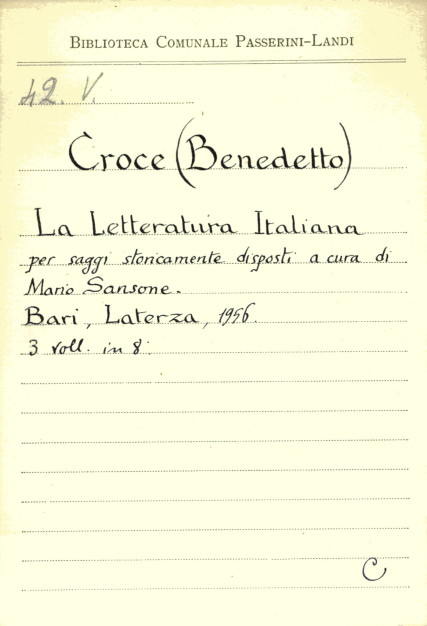 Biblioteca Comunale Passerini-Landi
42. V.
Croce (Benedetto)
La Letteratura Italiana
per saggi storicamente disposti a cura di
Mario Sansone.
Bari, Laterza, 1956.
3 voll. in 8°.
C